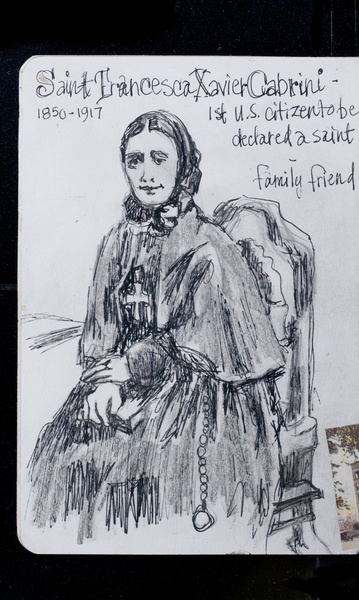 Saint Francesca Xavier Cabrini -
1850-1917
1st U.S. citizen to be
declared a saint
family friend